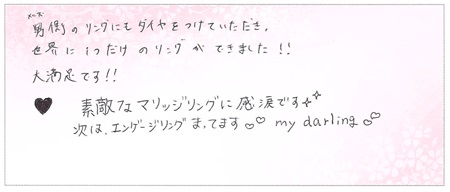 メンズ
男側のリングにもダイヤをつけていただき、
世界に1つだけのリングができました!!
大満足です!!
♥ 素敵なマリッジリングに感涙です✧✧
次は、エンゲージリングまってます♡♡ my darling ♡♡